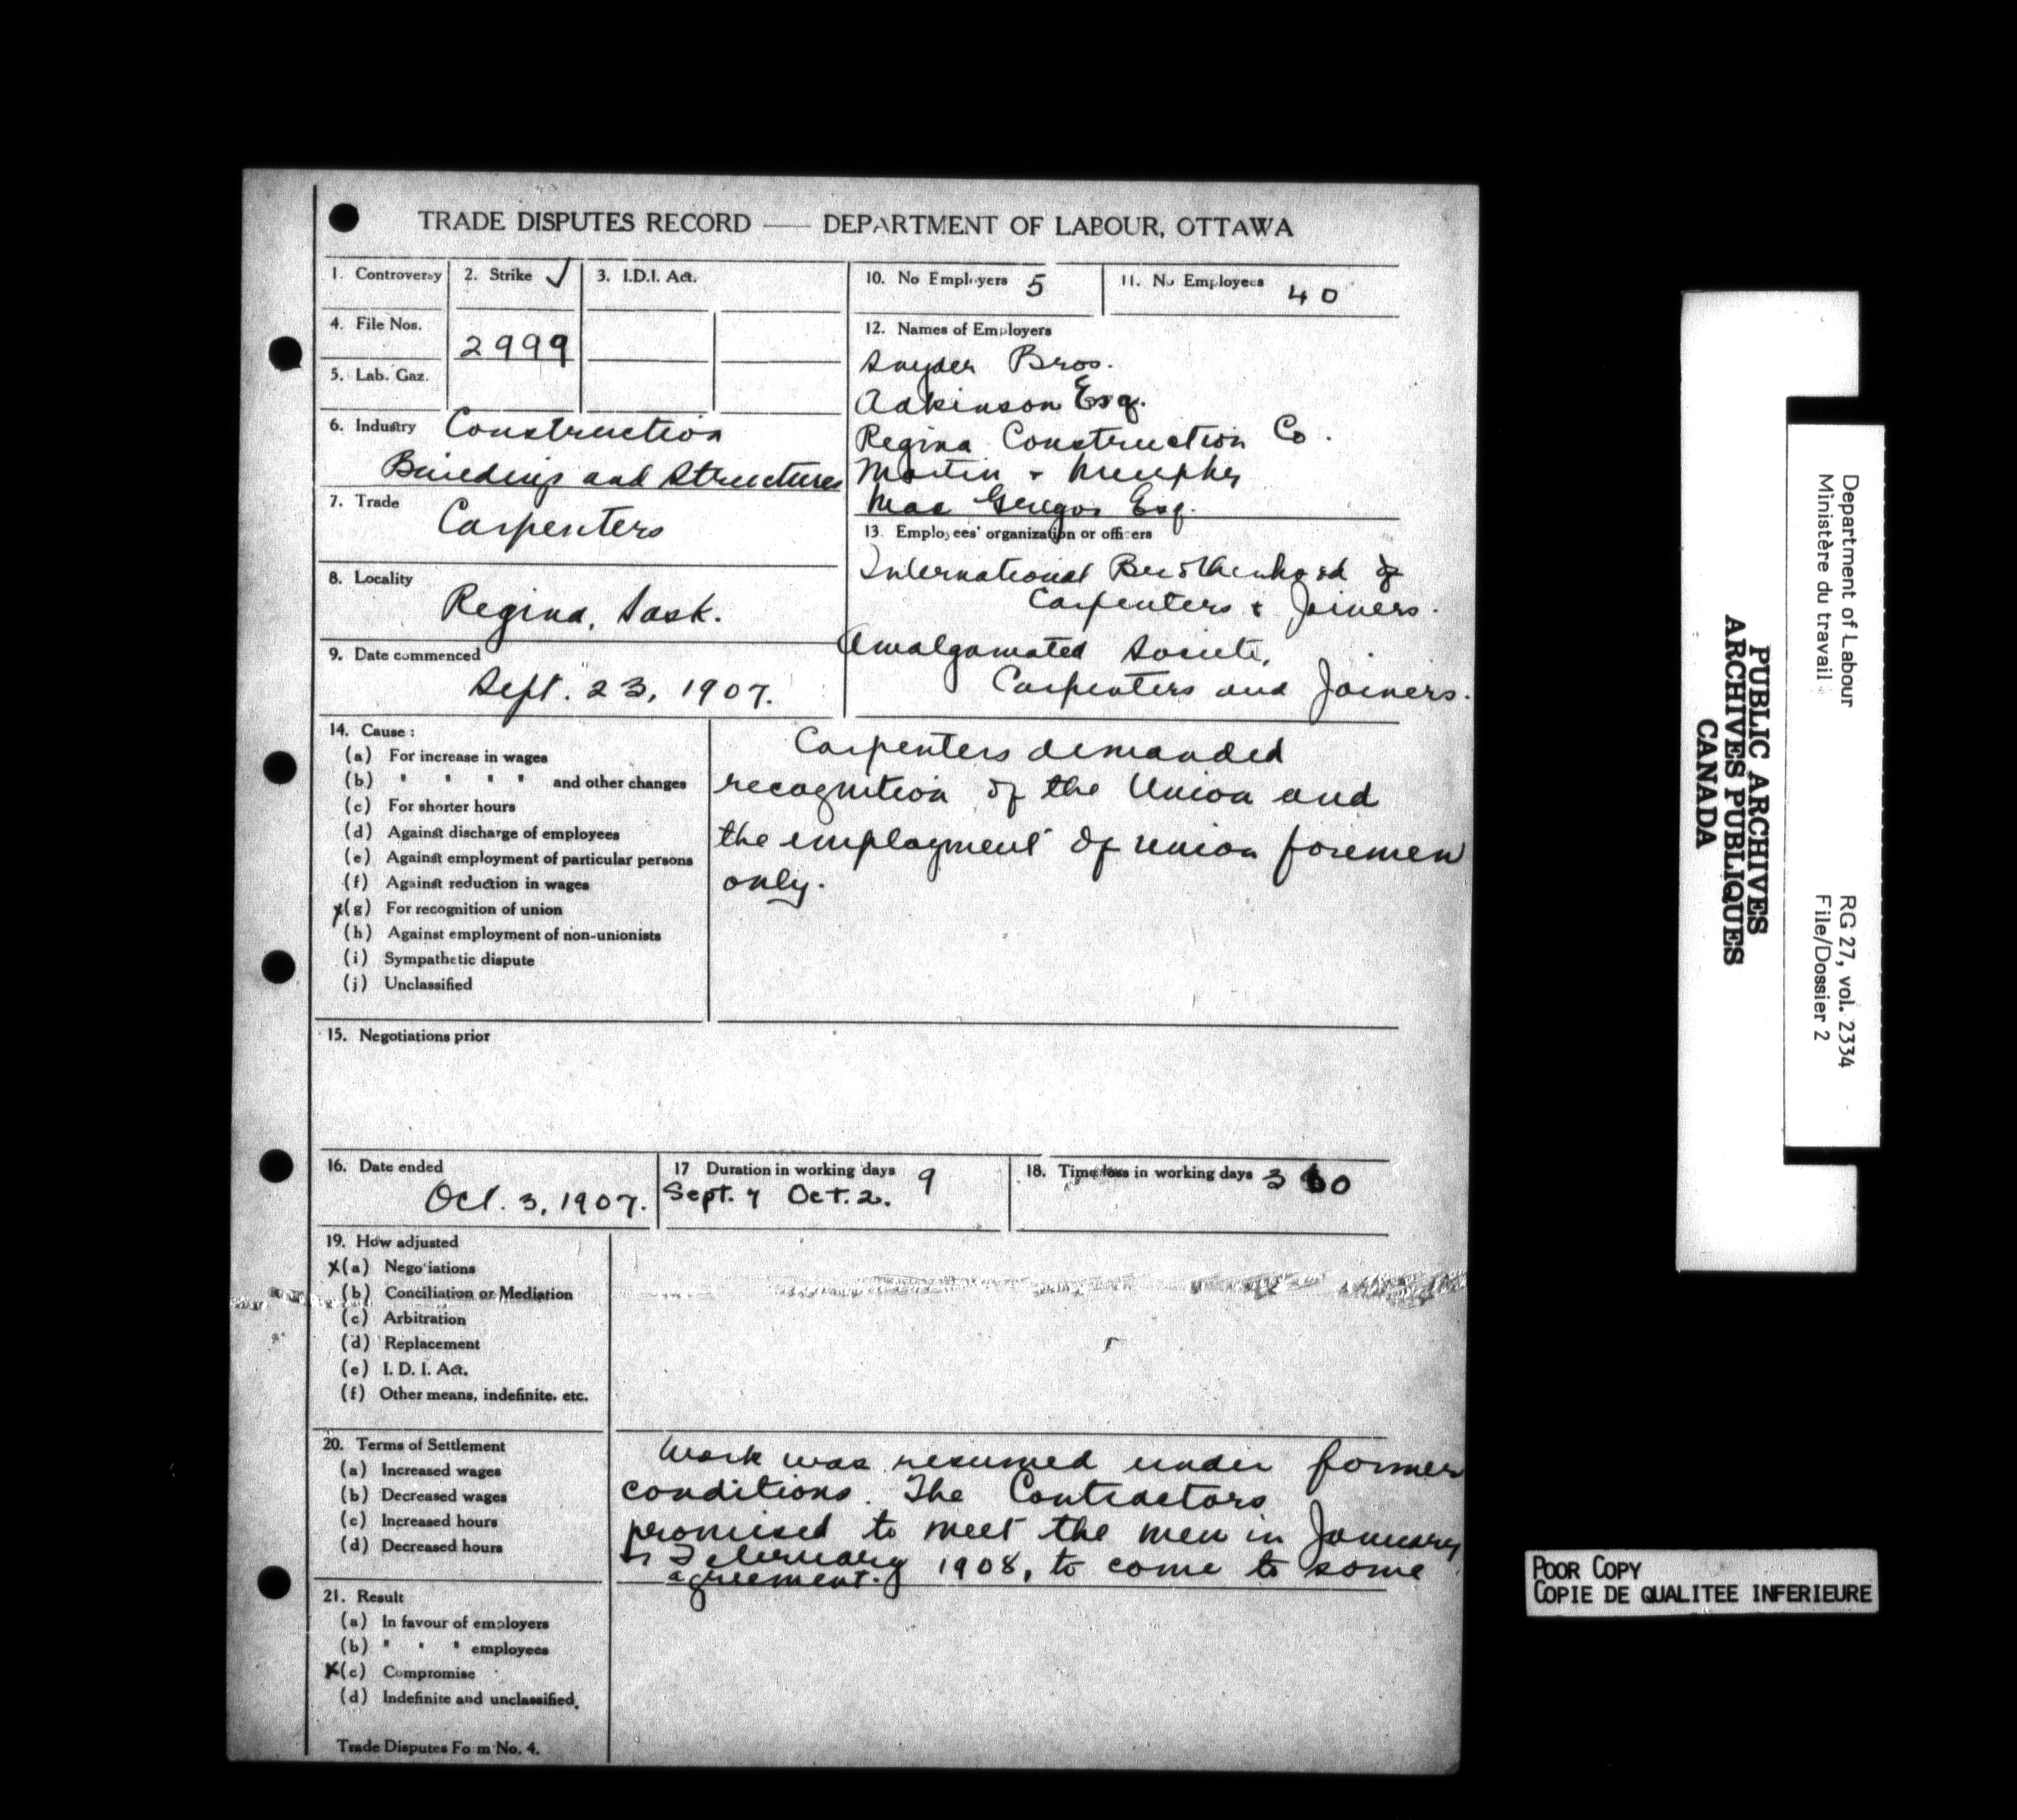 TRADE DISPUTES RECORD — DEPARTMENT OF LABOUR, OTTAWA
1. Controversy
2. Strike ✓
3. I.D.I. Act.
4. File Nos.
2999
5. Lab. Gaz.
6. Industry Construction
Buildings and Structures
7. Trade
Carpenters
8. Locality
Regina, Sask.
9. Date commenced
Sept. 23, 1907.
10. No Employers 5
11. No Employees 40
12. Names of Employers
Snyder Bros.
Adkinson Esq.
Regina Construction Co.
Martin + Murphy
Mac Gregor Esq.
13. Employees' organization or officers
International Brotherhood of
Carpenters & Joiners.
Amalgamated Society,
Carpenters and Joiners.
14. Cause :
(a) For increase in wages
(b) " " " " and other changes
(c) For shorter hours
(d) Against discharge of employees
(e) Against employment of particular persons
(f) Against reduction in wages
x(g) For recognition of union
(h) Against employment of non-unionists
(i) Sympathetic dispute
(j) Unclassified
Carpenters demanded
recognition of the Union and
the employment of union foremen
only.
15. Negotiations prior
16. Date ended
Oct. 3, 1907.
17 Duration in working days 9
Sept. 7 Oct. 2.
18. Time loss in working days 360
19. How adjusted
x(a) Negotiations
(b) Conciliation or Mediation
(c) Arbitration
(d) Replacement
(e) I. D. I. Act.
(f) Other means, indefinite, etc.
20. Terms of Settlement
(a) Increased wages
(b) Decreased wages
(c) Increased hours
(d) Decreased hours
Work was resumed under former
conditions. The Contractors
promised to meet the men in January
or February 1908, to come to some
agreement.
21. Result
(a) In favour of employers
(b) " " " employees
x(c) Compromise
(d) Indefinite and unclassified.
Trade Disputes Form No. 4.
Department of Labour
Ministère du travail
RG 27, vol. 2334
File/Dossier 2
PUBLIC ARCHIVES
ARCHIVES PUBLIQUES
CANADA
POOR COPY
COPIE DE QUALITEE INFERIEURE